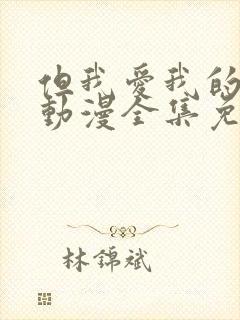 但我愛我的
動漫全集免
林錦斌